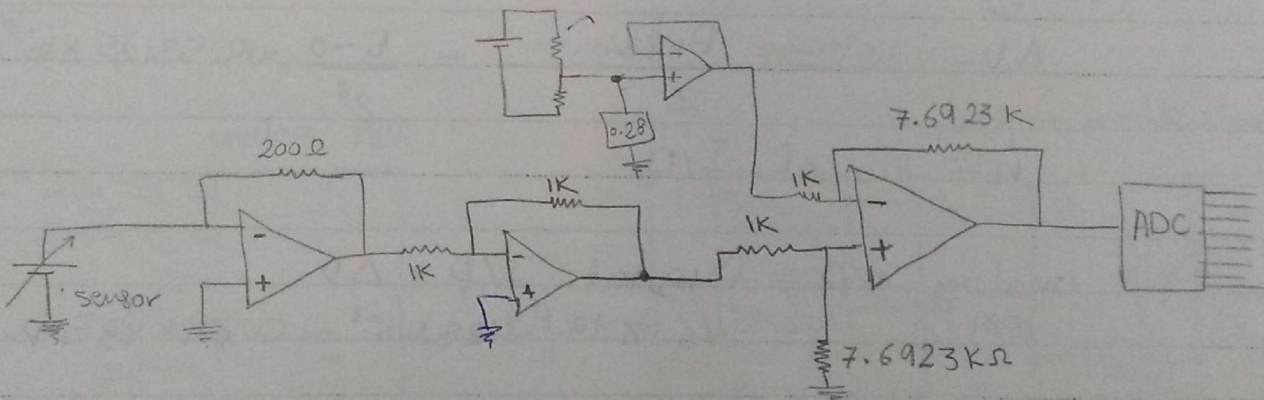 0.28
7.6923 K
200Ω
1K
1K
1K
1K
-
+
-
+
-
+
-
+
ADC
sensor
7.6923KΩ